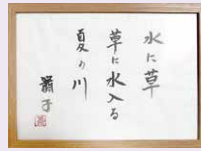 水に草
草に水入る
夏の川